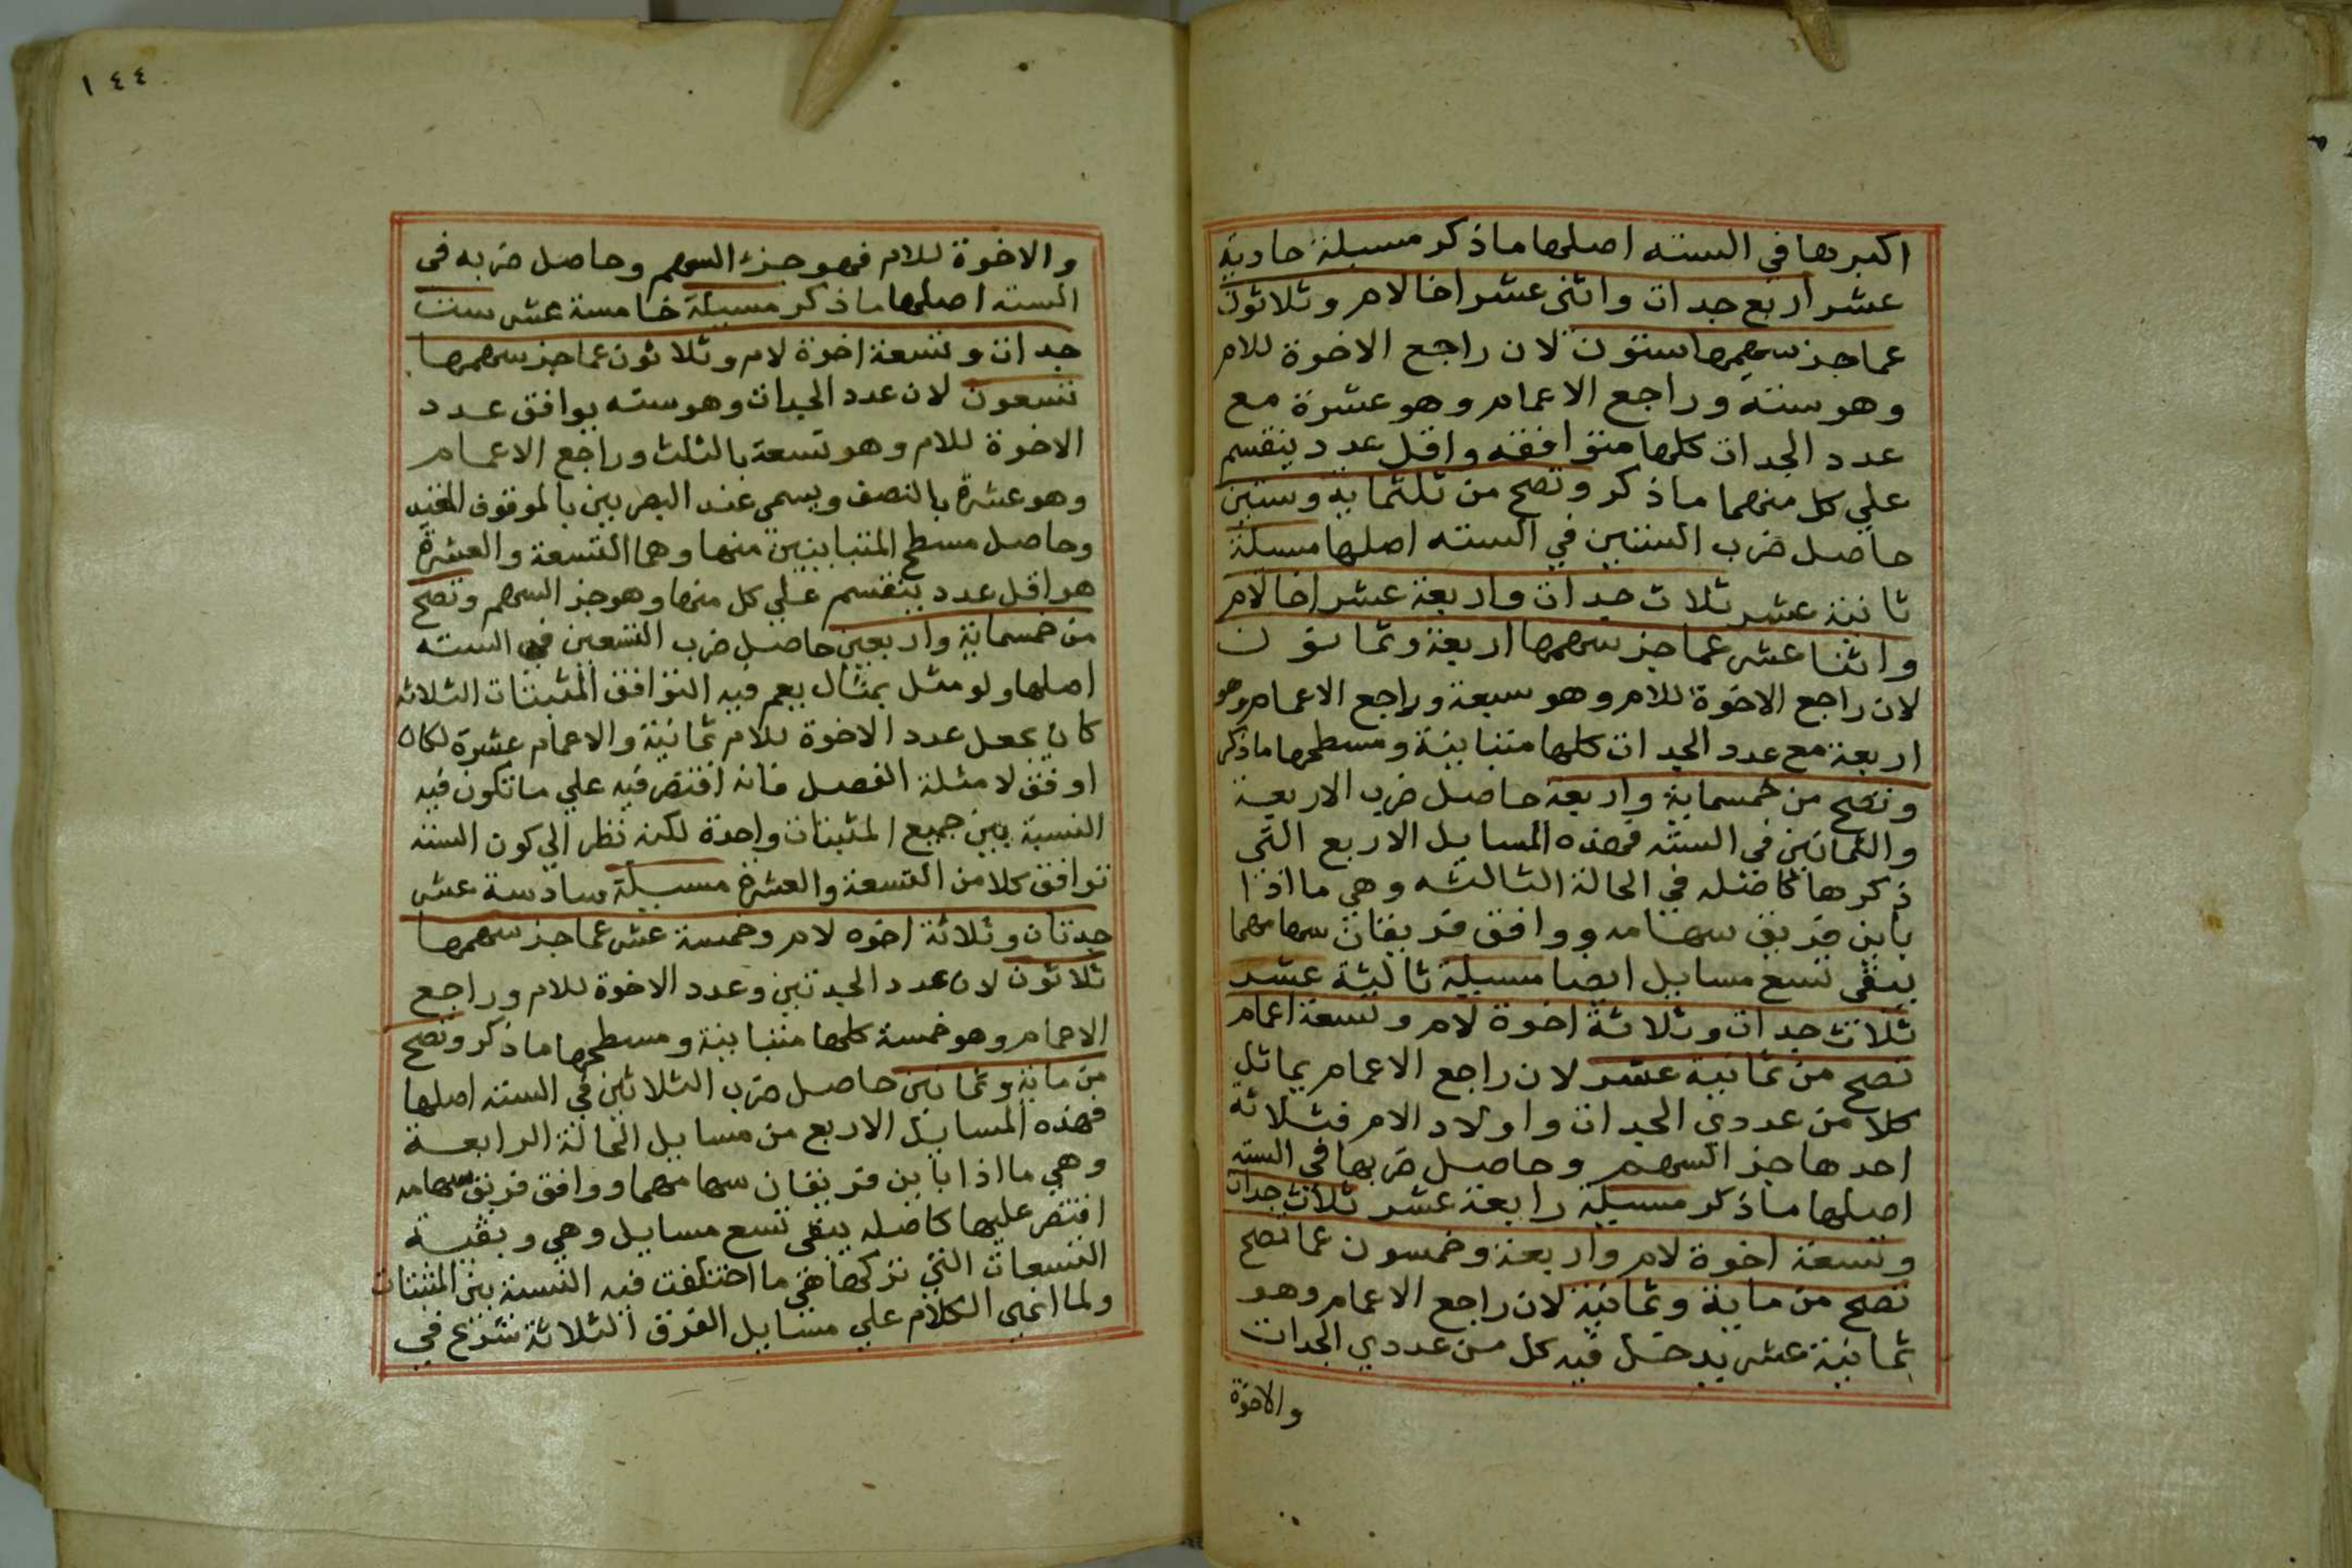 اكبرها في السته اصلها ماذكر مسيلة حادية
عشر اربع جدات واثنى عشر اخا لام وثلاثون
عما جز سهمها ستون لان راجع الاخوة للام
وهو ستة وراجع الاعمام وهو عشرة مع
عدد الجدات كلها متوافقه واقل عدد ينقسم
علي كل منهما ماذكر وتصح من ثلثماية وستين
حاصل ضرب الستين في السته اصلها مسيلة
ثانية عشر ثلاث جدات واربعة عشر اخا لام
واثنا عشر عما جز سهمها اربعة وثمانون
لان راجع الاخوة للام وهو سبعة وراجع الاعمام وهو
اربعة مع عدد الجدات كلها متباينة ومسطحها ماذكر
وتصح من خمسماية واربعة حاصل ضرب الاربعة
والثمانين في السته فهذه المسايل الاربع التي
ذكرها كاصله في الحالة الثالثه وهي ما اذا
باين فريق سهامه ووافق فريقان سهامهما
يبقى تسع مسايل ايضا مسيلة ثالثة عشر
ثلاث جدات وثلاثة اخوة لام وتسعة اعمام
تصح من ثمانية عشر لان راجع الاعمام يماثل
كلا من عددي الجدات واولاد الام فثلاثة
احدها جز السهم وحاصل ضربها في السته
اصلها ماذكر مسيلة رابعة عشر ثلاث جدات
وتسعة اخوة لام واربعة وخمسون عما تصح
تصح من ماية وثمانية لان راجع الاعمام وهو
ثمانية عشر يدخل فيه كل من عددي الجدات
والاخوة
١٤٤
والاخوة للام فهو جزء السهم وحاصل ضربه في
السته اصلها ماذكر مسيلة خامسة عشر ست
جدات وتسعة اخوة لام وثلاثون عما جز سهمها
تسعون لان عدد الجدات وهو سته يوافق عدد
الاخوة للام وهو تسعة بالثلث وراجع الاعمام
وهو عشرة بالنصف ويسمى عند البصريين بالموقوف المقيد
وحاصل مسطح المتباينين منها وهما التسعة والعشرة
هو اقل عدد ينقسم علي كل منها وهو جز السهم وتصح
من خمسماية واربعين حاصل ضرب التسعين في السته
اصلها ولو مثل بمثال يعم فيه التوافق المثبتات الثلاثه
كان يجعل عدد الاخوة للام ثمانية والاعمام عشرة لكان
اوفق لامثلة الفصل فانه اقتصر فيه علي ما تكون فيه
النسبة بين جميع المثبتات واحدة لكنه نظر الي كون السته
توافق كلا من التسعة والعشرة مسيلة سادسة عشر
جدتان وثلاثة اخوه لام وخمسة عشر عما جز سهمها
ثلاثون لان عدد الجدتين وعدد الاخوة للام وراجع
الاعمام وهو خمسة كلها متباينة ومسطحها ماذكر وتصح
من ماية وثمانين حاصل ضرب الثلاثين في السته اصلها
فهذه المسايل الاربع من مسايل الحالة الرابعة
وهي ما اذا باين فريقان سهامهما ووافق فريق سهامه
اقتصر عليها كاصله يبقى تسع مسايل وهي وبقية
التسعات التي تركها هي ما اختلفت فيه النسبة بين المثبتات
ولما انهى الكلام علي مسايل الفرق الثلاثة شرع في